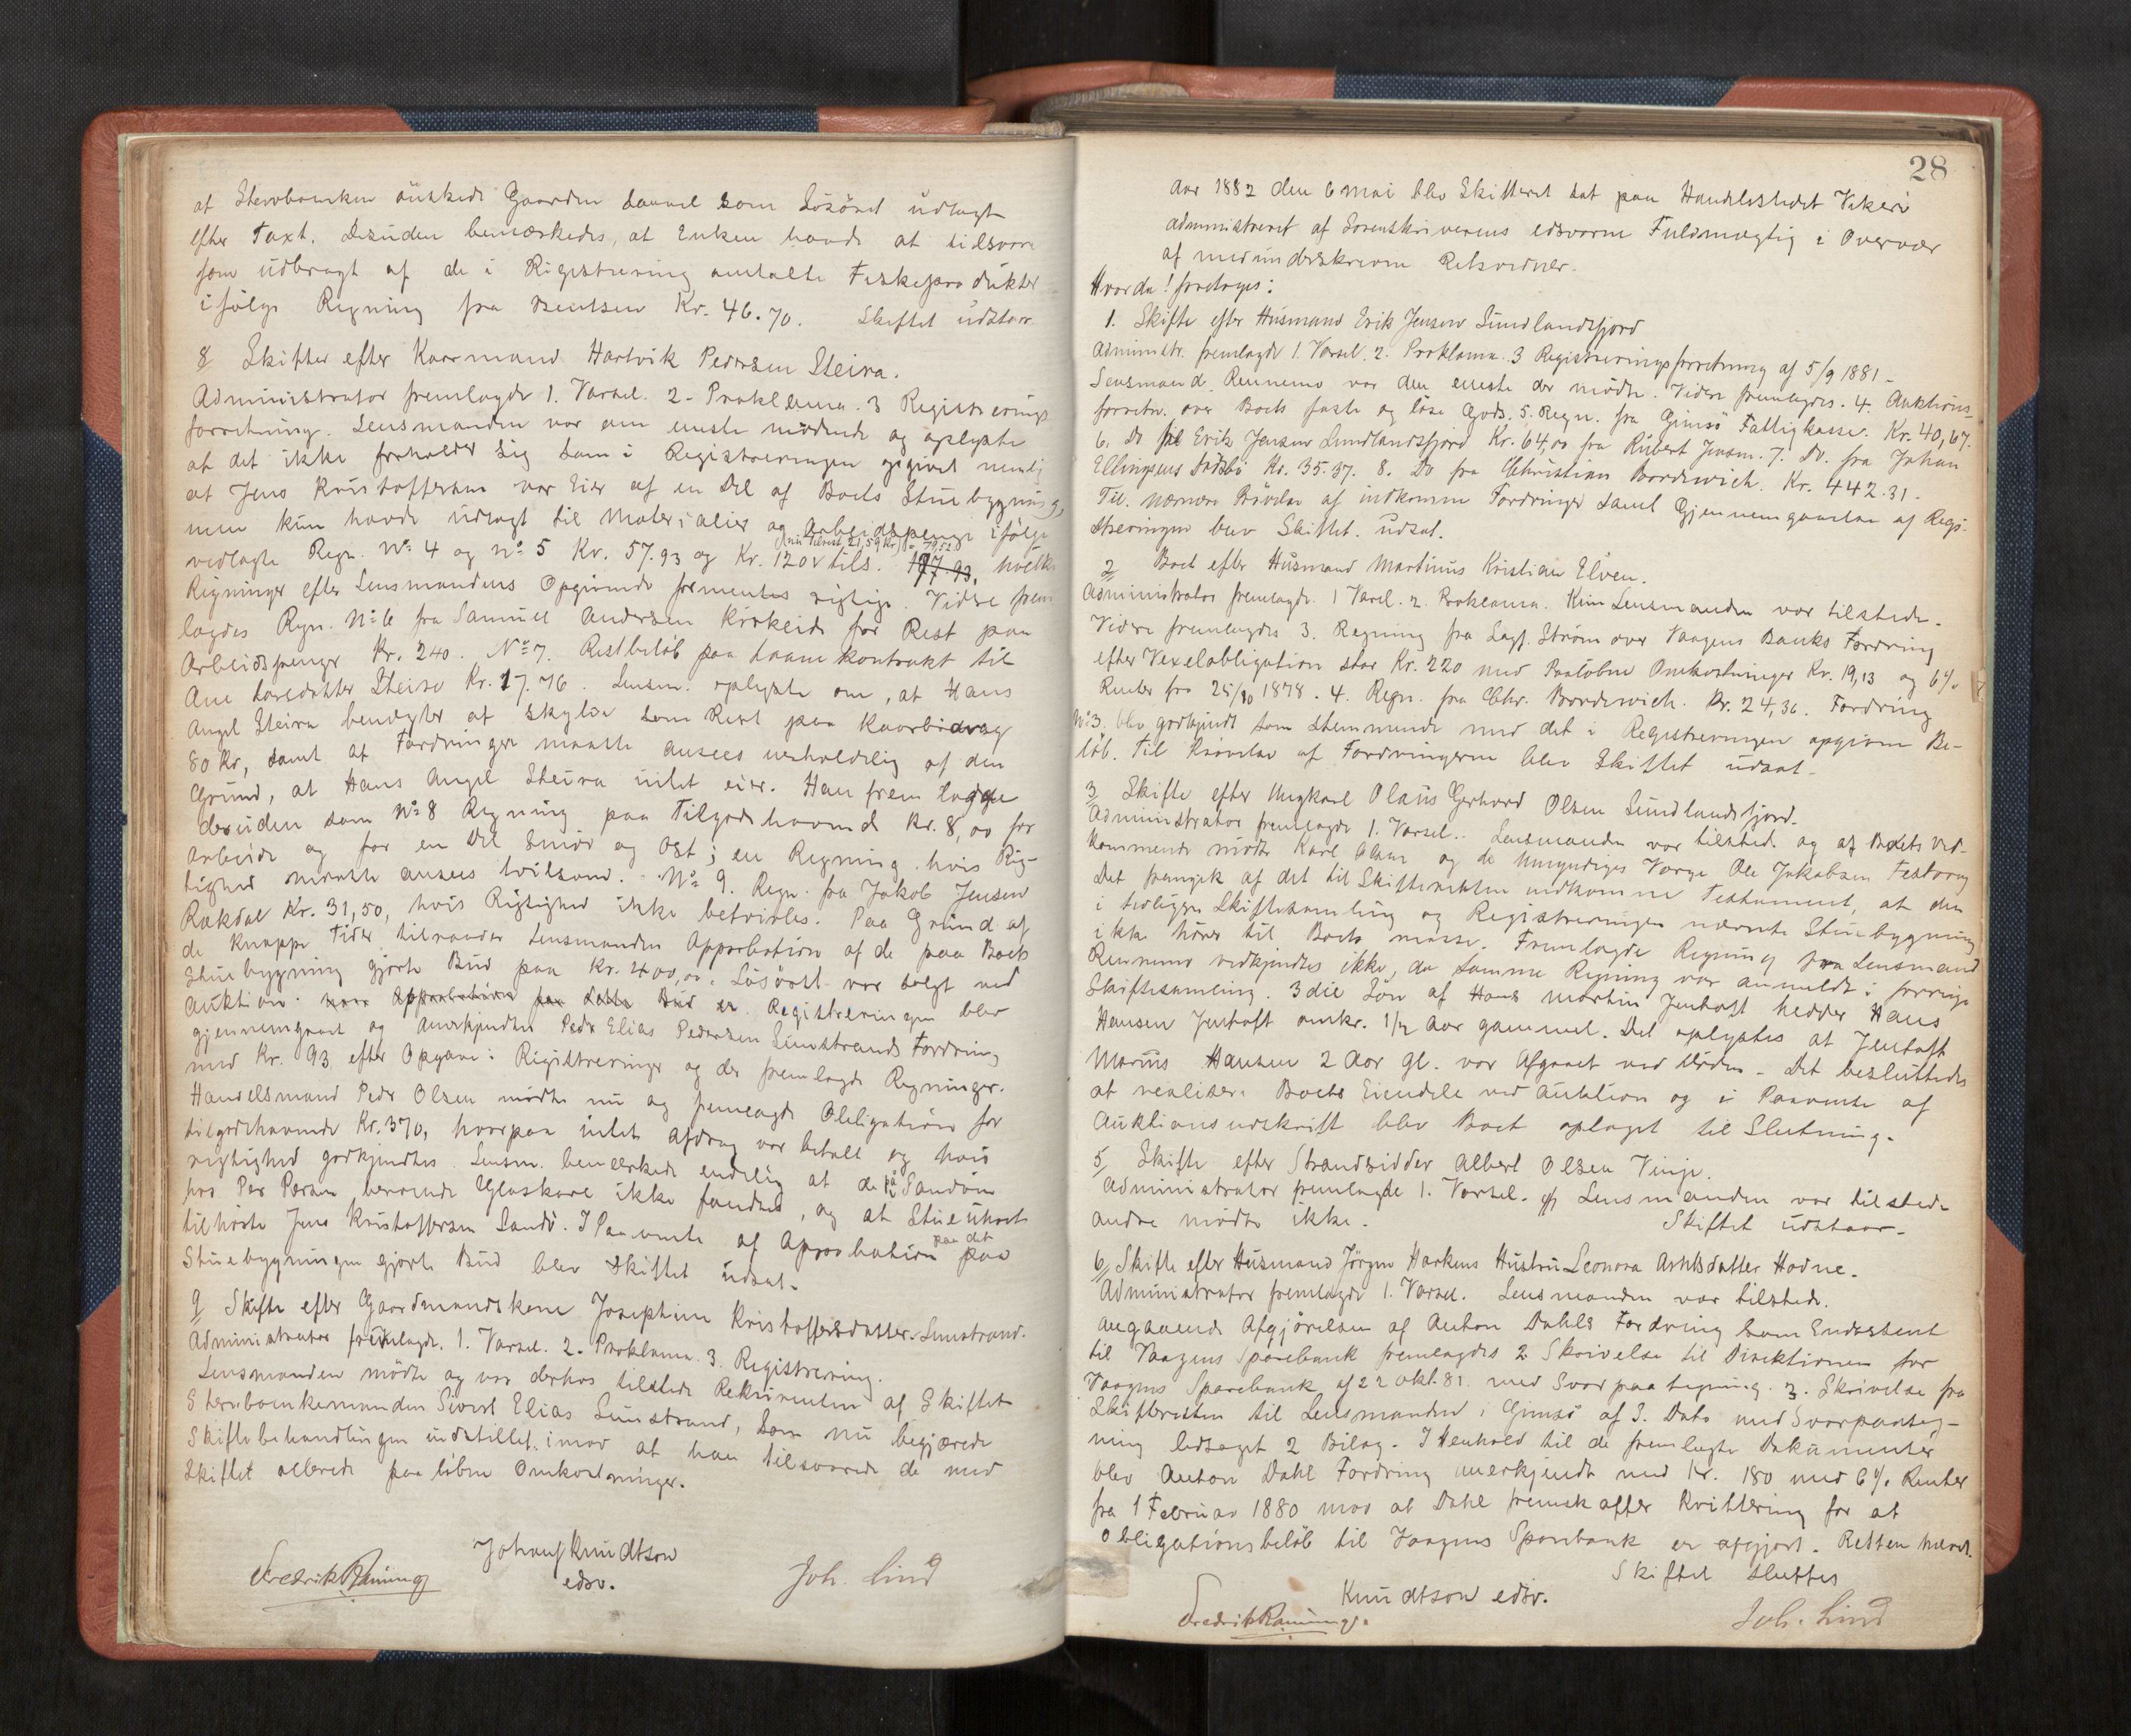 at Stervboenken önskede Gaarden saavel som Lösöret udlagt
efter Taxt. Desuden bemærkedes, at Enken havde at tilsvare
som udbragt af de i Registrering anførte Fiskeprodukter
ifølge Regning fra Bentsen Kr. 46.70. Skiftet udstaar
8 Skifter efter Kaarmand Hartvik Pedersen Steira.
Administrator fremlagde 1. Varsel. 2. Proklama. 3 Registrerings
forretning. Lensmanden var den eneste mødende og oplyste
at det ikke forholder sig som i Registreringen opgivet nemlig
at Jens Kristoffersen var Eier af en Del af Boets Stuebygning,
men kun havde udlagt til Materialier og Arbeidspenge ifølge
vedlagte Regn. No 4 og No 5 Kr. 57.93 og Kr. 120 tils. 177.93, hvilke
Regninger efter Lensmandens Opgivende formentes rigtige. Videre frem
lagdes Regn. No 6 fra Samuel Andersen Kirkeide for Rest paa
Arbeidspenge Kr. 240. No 7. Restbeløb paa Laanekontrakt til
Ane Larsdatter Steiro Kr. 17.76. Lensm. oplyste om, at Hans
Angel Steira benegter at skylde som Rest paa Kaarbidrag
80 Kr, samt at Fordringen maatte ansees uerholdelig af den
Grund, at Hans Angel Steira intet eier. Han fremlagde
desuden som No 8 Regning paa Tilgodehavende Kr. 8,00 for
Arbeide og for en Del Smør og Ost; en Regning hvis Rig-
tighed maatte ansees tvilsom. No 9. Regn. fra Jakob Jensen
Rækdal Kr. 31,50, hvis Rigtighed ikke betvivles. Paa Grund af
de knappe Tider tilraader Lensmanden Approbation af de paa Boets
Stuebygning gjorte Bud paa Kr. 400,00. Lösöret var solgt ved
Auktion. Approbation paa dette Bud er. Registreringen blev
gjennemgaaet og Anerkjendtes Peder Elias Pedersen Limstrands Fordring
med Kr. 93 efter Opgave i Registreringen og de fremlagte Regninger.
Handelsmand Peder Olsen mødte nu og fremlagde Obligation for
tilgodehavende Kr. 370, hvorpaa intet Afdrag var betalt og hvis
rigtighed godkjendtes. Lensm. bemærkede endelig at de i Sandöen
hos Per Persen beroende Glaskarl ikke fandtes, og at Stueuhret
tilhørte Jens Kristoffersen Sandö. I Paavente af Approbation paa det paa
Stuebygningen gjorte Bud blev Skiftet udsat.
9 Skifte efter Gaardmandskone Josephine Kristoffersdatter Limstrand.
Administrator fremlagde. 1. Varsel. 2. Proklama. 3. Registrering.
Lensmanden mødte og var derhos tilstede Rekvirenten af Skiftet
Stervboenkemanden Sivert Elias Limstrand, som nu begjærede
Skiftebehandlingen indstillet imod at han tilsvarede de med
Skiftet allerede paaløbne Omkostninger.
Johan Knudtson
edsv.
Fredrik Rønning
Joh. Lind
28
Aar 1882 den 6 Mai blev Skifteret sat paa Handelsstedet Vikerö
administreret af Sorenskriverens edsvorne Fuldmægtig i Overvær
af medunderskrevne Retsvidner.
Hvorda! foretoges:
1. Skifte efter Husmand Erik Jensen Sundlandsfjord
Administr. fremlagde 1. Varsel. 2. Proklama. 3 Registreringsforretning af 5/9 1881.
Lensmand Rennemo var den eneste der mødte. Videre fremlagdes. 4. Auktions-
forretn. over Boets faste og løse Gods. 5. Regn. fra Gimsö Fattigkasse. Kr. 40,67.
6. Do fra Erik Jensen Sundlandsfjord Kr. 64,00 fra Rubert Jensen. 7. Do. fra Johan
Ellingsens Dødsbo Kr. 35.37. 8. Do fra Christian Bordewich. Kr. 442.31.
Til nærmere Prøvelse af indkomne Fordringer samt Gjennemgaaelse af Regi-
streringen blev Skiftet udsat.
2 Boet efter Husmand Martinus Kristian Elven.
Administrator fremlagde. 1 Varsel. 2. Proklama. Kun Lensmanden var tilstede.
Videre fremlagdes 3. Regning fra Sagf. Strøm over Vaagens Banks Fordring
efter Vexelobligation stor Kr. 220 med Paaløbne Omkostninger Kr. 19,13 og 6%
Renter fra 25/10 1878. 4. Regn. fra Chr. Bordewich. Kr. 24,36. Fordring
No 3. blev godkjendt som stemmende med det i Registreringen opgivne Be-
løb. Til Prøvelse af Fordringerne blev Skiftet udsat.
3 Skifte efter Ungkarl Olaus Gerhard Olsen Sundlandsfjord.
Administrator fremlagde 1. Varsel.. Lensmanden var tilstede og af Boets Ved-
kommende mødte Karl Olsen og de Umyndiges Verge Ole Jakobsen Festvaag
Det fremgik af det til Skifteretten indkomne Testament, at den
i tidligere Skiftesamling og Registreringen nævnte Stuebygning
ikke hører til Boets masse. Fremlagde Regning fra Lensmand
Rennemo vedkjendtes ikke, da samme Regning var anmeldt i forrige
Skiftesamling. 3die Søn af Hans Martin Jentoft hedder Hans
Hansen Jentoft omkr. 1/2 Aar gammel. Det oplystes at Jentoft
Marius Hansen 2 Aar gl. var Afgaaet ved Døden. Det besluttedes
at realisere Boets Eiendele ved Auktion og i Paavente af
Auktionsudskrift blev Boet optaget til Slutning.
5 Skifte efter Strandsidder Albert Olsen Vinje.
Administrator fremlagde 1. Varsel. Lensmanden var tilstede
andre mødte ikke. Skiftet udstaar.
6 Skifte efter Husmand Jörgen Harkens Hustru Leonora Arntsdatter Hadne.
Administrator fremlagde 1. Varsel. Lensmanden var tilstede.
Angaaende Afgjörelsen af Anton Dahls Fordring som Endossent
til Vaagens Sparebank fremlagdes 2 Skrivelse til Direktionen for
Vaagens Sparebank af 22 okt. 81. med Svarpaategning. 3. Skrivelse fra
Skifteretten til Lensmanden i Gimsö af 3. Dats med Svarpaateg-
ning ledsaget 2 Bilag. I Henhold til de fremlagte Dokumenter
blev Anton Dahl Fordring anerkjendt med Kr. 180 med 6% Renter
fra 1 Februar 1880 mod at Dahl fremskaffer Kvittering for at
Obligationsbeløb til Vaagens Sparebank er afgjort. Retten hævet.
Skiftet sluttes
Knudtson edsv.
Fredrik Rønning.
Joh. Lind